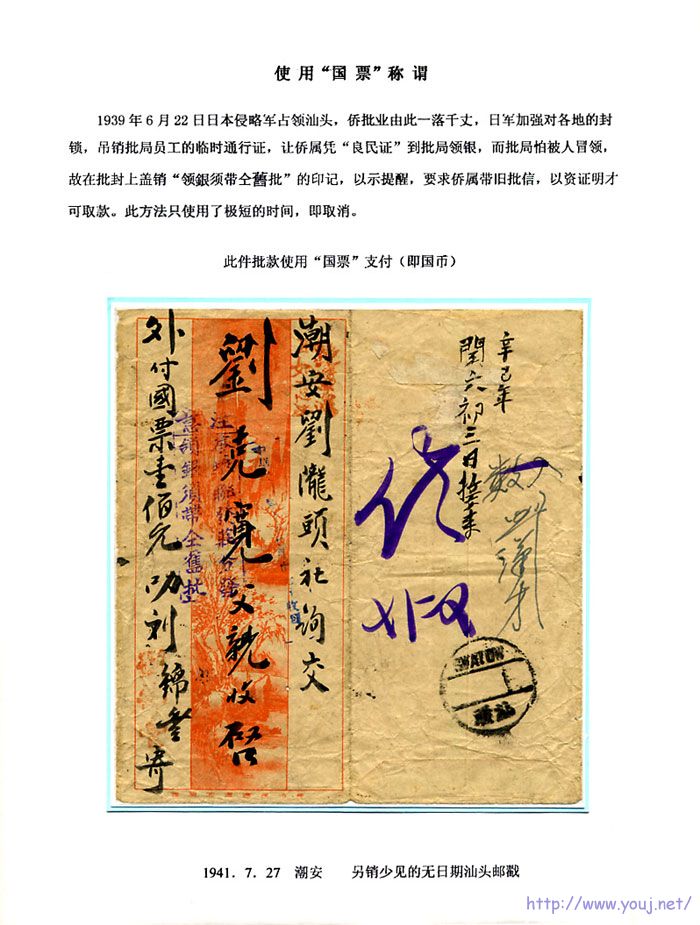 使用“国票”称谓
1939年6月22日日本侵略军占领汕头，侨批业由此一落千丈，日军加强对各地的封
锁，吊销批局员工的临时通行证，让侨属凭“良民证”到批局领银，而批局怕被人冒领，
故在批封上盖销“领銀须带仝舊批”的印记，以示提醒，要求侨属带旧批信，以资证明才
可取款。此方法只使用了极短的时间，即取消。
此件批款使用“国票”支付（即国币）
辛巳年
閏六初三日
潮安劉隴頭社詢交
劉
父親收啓
外付國票壹佰元
寄
領銀須帶仝舊批
SWATOW
汕頭
1941．7．27 潮安 另销少见的无日期汕头邮戳
http://www.youj.net/